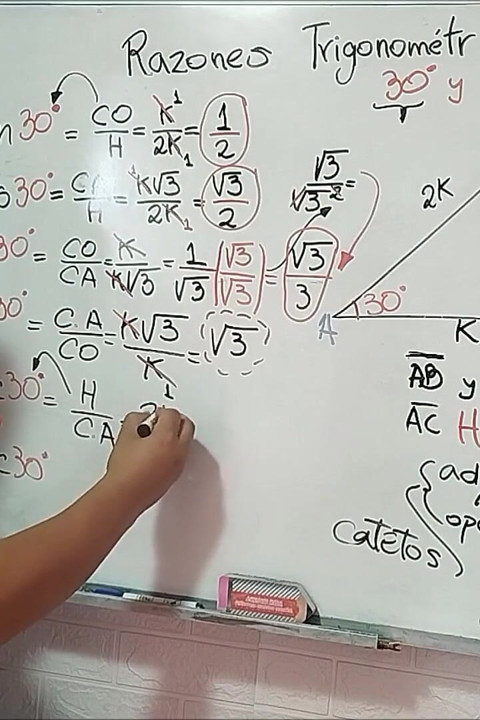 Razones Trigonométr
30° y
n 30° = CO/H = K/2K = 1/2
1 1
s 30° = CA/H = K√3/2K = √3/2
1 1
30° = CO/CA = K/K√3 = 1/√3 (√3/√3) = √3/3
√3/√3² =
30° = C.A/CO = K√3/K = √3
1
30° = H/C.A =
c 30°
2K
A 30°
K
AB y
AC H
Catetos { ad
op